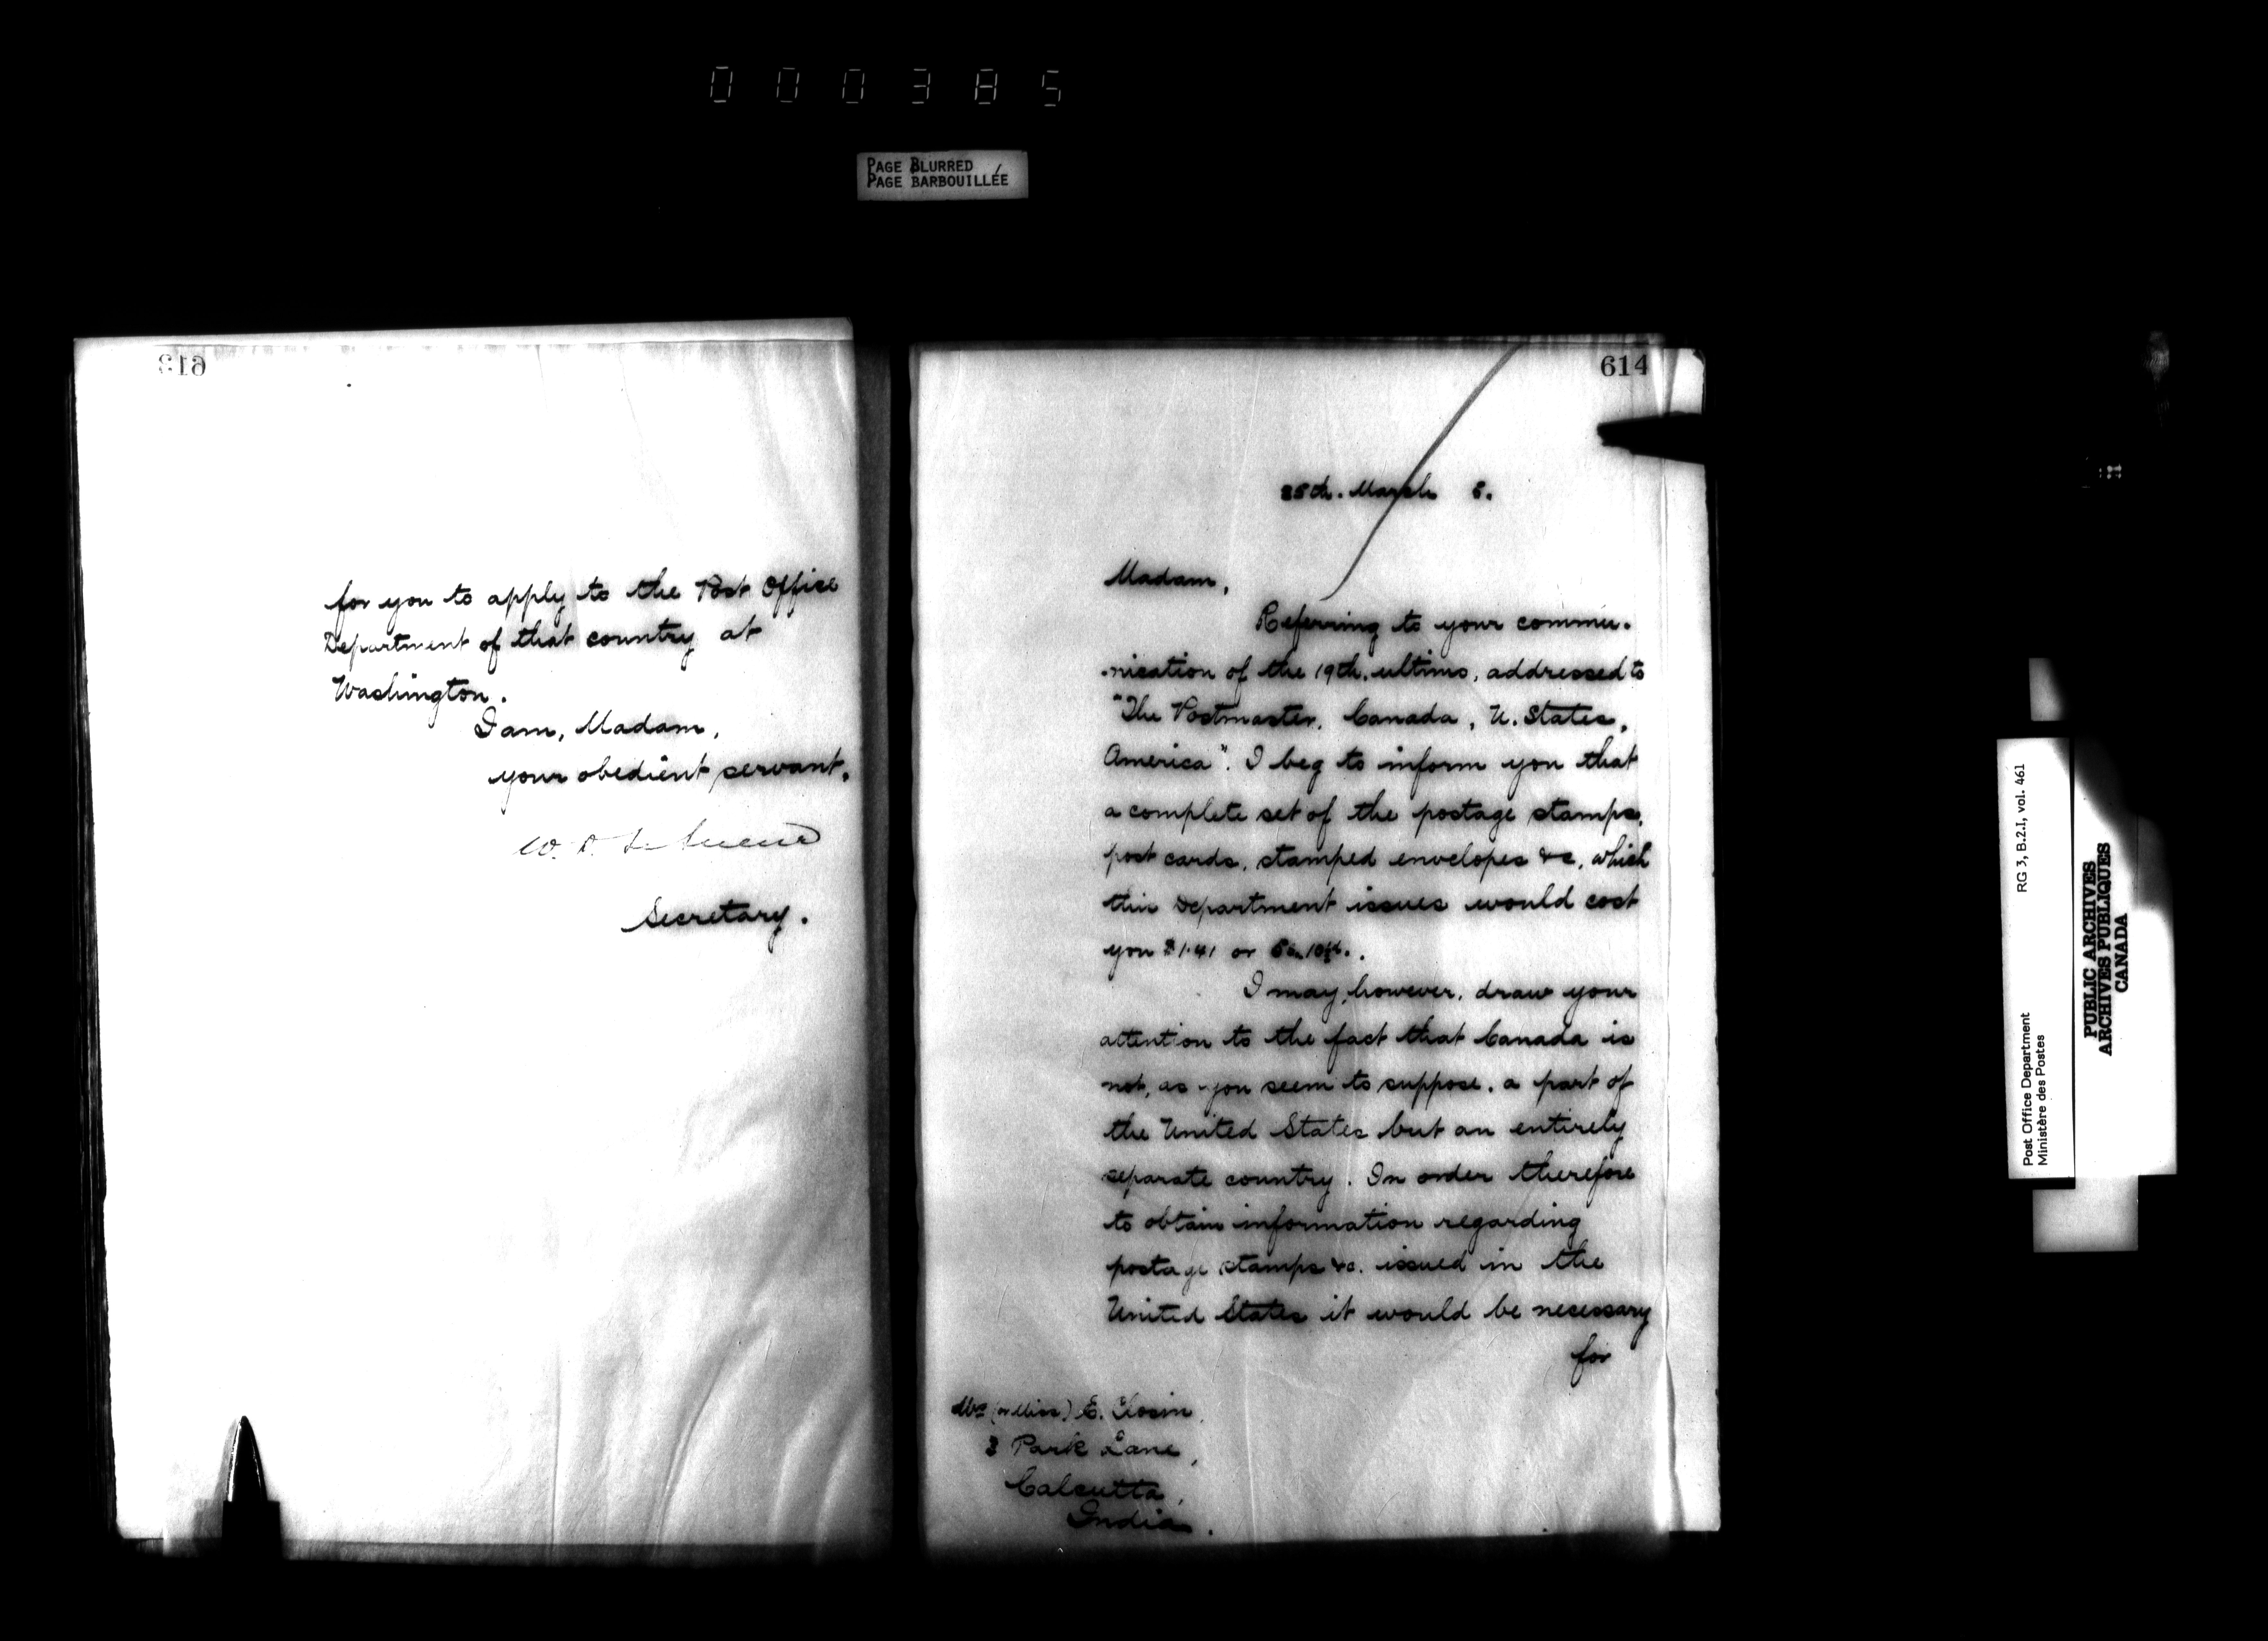 000385
PAGE BLURRED
PAGE BARBOUILLÉE
613
for you to apply to the Post Office
Department of that country at
Washington.
I am, Madam,
your obedient servant,
W. D.
Secretary.
614
25th. March 8.
Madam,
Referring to your commu-
-nication of the 19th. ultimo, addressed to
"The Postmaster, Canada, U. States,
America". I beg to inform you that
a complete set of the postage stamps,
post cards, stamped envelopes &c, which
this Department issues would cost
you $1.41 or
I may, however, draw your
attention to the fact that Canada is
not, as you seem to suppose, a part of
the United States but an entirely
separate country. In order therefore
to obtain information regarding
postage stamps &c. issued in the
United States it would be necessary
for
Mrs (or Miss) E.
Park Lane,
Calcutta,
India.
Post Office Department
Ministère des Postes
RG 3, B.2.I, vol. 461
PUBLIC ARCHIVES
ARCHIVES PUBLIQUES
CANADA